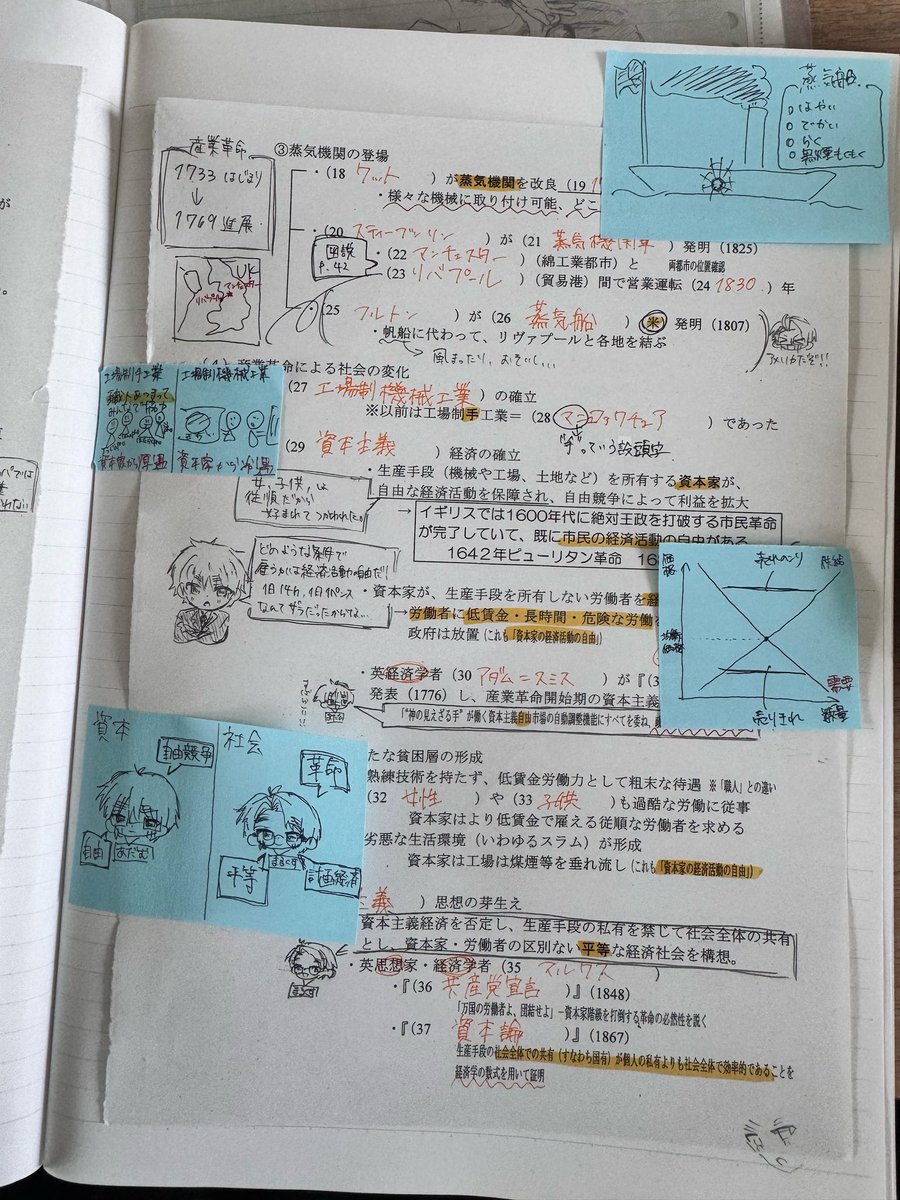 産業革命
1733 はじまり
↓
1769 進展
③蒸気機関の登場
・(18 ワット )が蒸気機関を改良 (19
・様々な機械に取り付け可能、どこ
・(20 スティーブンソン )が (21 蒸気機関車 )発明 (1825)
図説
P.42
・(22 マンチェスター )(綿工業都市) と 両都市の位置確認
(23 リバプール )(貿易港) 間で営業運転 (24 1830 )年
UK
マンチェスター
リバプール
(25 フルトン )が (26 蒸気船 ) 米 発明 (1807)
・帆船に代わって、リヴァプールと各地を結ぶ
風まったり、おそいし、
蒸気船
はやい
でかい
らく
黒煙もくもく
産業革命による社会の変化
工場制手工業
職人あつまって
資本家から
工場制機械工業
資本家から
(27 工場制機械工業 )の確立
※以前は工場制手工業= (28 マニュファクチュア )であった
"手"っていう接頭字
(29 資本主義 )経済の確立
・生産手段 (機械や工場、土地など) を所有する資本家が、
自由な経済活動を保障され、自由競争によって利益を拡大
女、子供、は
従順だから
好まれてつかわれた。
→イギリスでは1600年代に絶対王政を打破する市民革命
が完了していて、既に市民の経済活動の自由がある
1642年ピューリタン革命
どのような条件で
雇うかは経済活動の自由だ!
1日14h、1日1ペンス
なんてザラだったからな…
・資本家が、生産手段を所有しない労働者を
→労働者に低賃金・長時間・危険な労働
政府は放置 (これも「資本家の経済活動の自由」)
価格
需要
数量
売りきれ
・英経済学者 (30 アダム=スミス )が『(3
発表 (1776) し、産業革命開始期の資本主義
"神の見えざる手"が働く資本主義自由市場の自動調整機能にすべてを委ね、
資本
自由競争
自由
あだむ
社会
革命
平等
まるくす
計画経済
たな貧困層の形成
熟練技術を持たず、低賃金労働力として粗末な待遇 ※「職人」との違い
(32 女性 )や (33 子供 )も過酷な労働に従事
資本家はより低賃金で雇える従順な労働者を求める
劣悪な生活環境 (いわゆるスラム) が形成
資本家は工場は煤煙等を垂れ流し (これも「資本家の経済活動の自由」)
主義 )思想の芽生え
資本主義経済を否定し、生産手段の私有を禁じて社会全体の共有
とし、資本家・労働者の区別ない平等な経済社会を構想。
・英思想家・経済学者 (35 マルクス )
・『(36 共産党宣言 )』(1848)
「万国の労働者よ、団結せよ」−資本家階級を打倒する革命の必然性を説く
・『(37 資本論 )』(1867)
生産手段の社会全体での共有 (すなわち国有) が個人の私有よりも社会全体で効率的であることを
経済学の数式を用いて証明